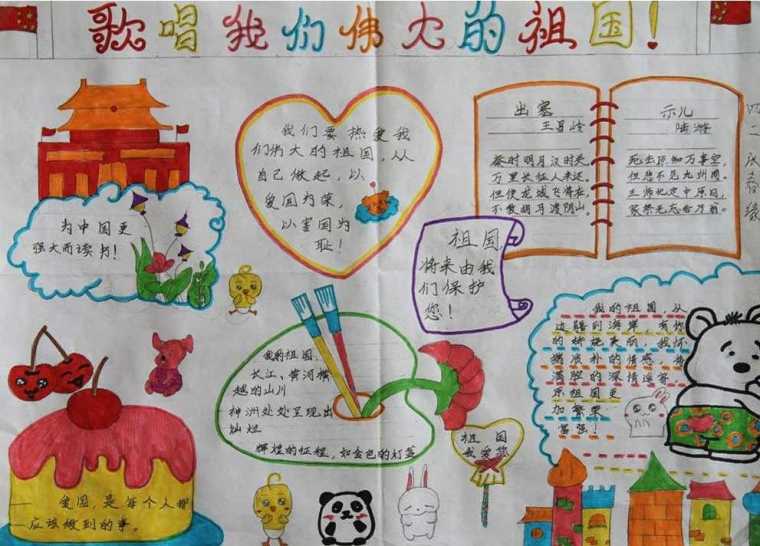 歌唱我们伟大的祖国!
为中国更
强大而读书!
我们要热爱我
们伟大的祖国,从
自己做起,以
爱国为荣,
以害国为
耻!
出塞
王昌龄
秦时明月汉时关
万里长征人未还,
但使龙城飞将在,
不教胡马渡阴山。
示儿
陆游
死去原知万事空,
但悲不见九州同。
王师北定中原日,
家祭无忘告乃翁。
祖国
将来由我
们保护
您!
我的祖国,
长江、黄河横
越的山川
神洲处处呈现出
灿烂
辉煌的征程,如金色的灯盏
祖国
我爱你
我的祖国,从
边疆到海岸
的深情
祖国更
加繁荣
富强!
爱国,是每个人都
应该做到的事。
四二